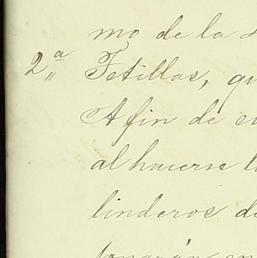 mo de la
2ª Tetillas, qu
A fin de ev
al hacerse l
linderos d